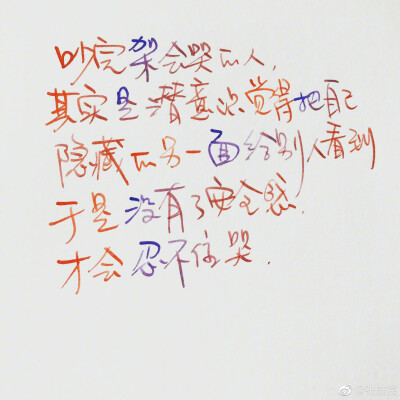 吵完架会哭的人,
其实是潜意识觉得把自己
隐藏的另一面给别人看到
于是没有了安全感.
才会忍不住哭.